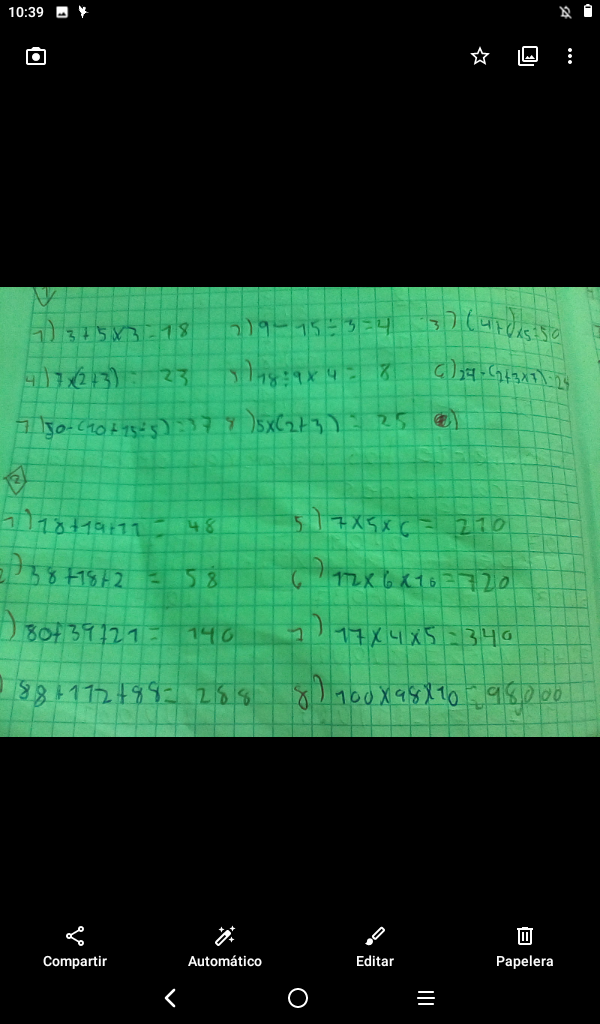 10:39
1) 3+5×3=18 2) 9-15÷3=4 3) (4+6)×5=50
4) 7×(2+3)= 23 5) 18÷9×4= 8 6) 29-(2+3×1)=24
7) 50-(10+15÷5)=37 8) 5×(2+3)= 25
2
1) 18+19+11= 48 5) 7×5×6= 210
2) 38+18+2 = 58 6) 12×6×10=720
) 80+39+21= 140 7) 17×4×5=340
) 88+112+88= 288 8) 100×98×10=98,000
Compartir Automático Editar Papelera